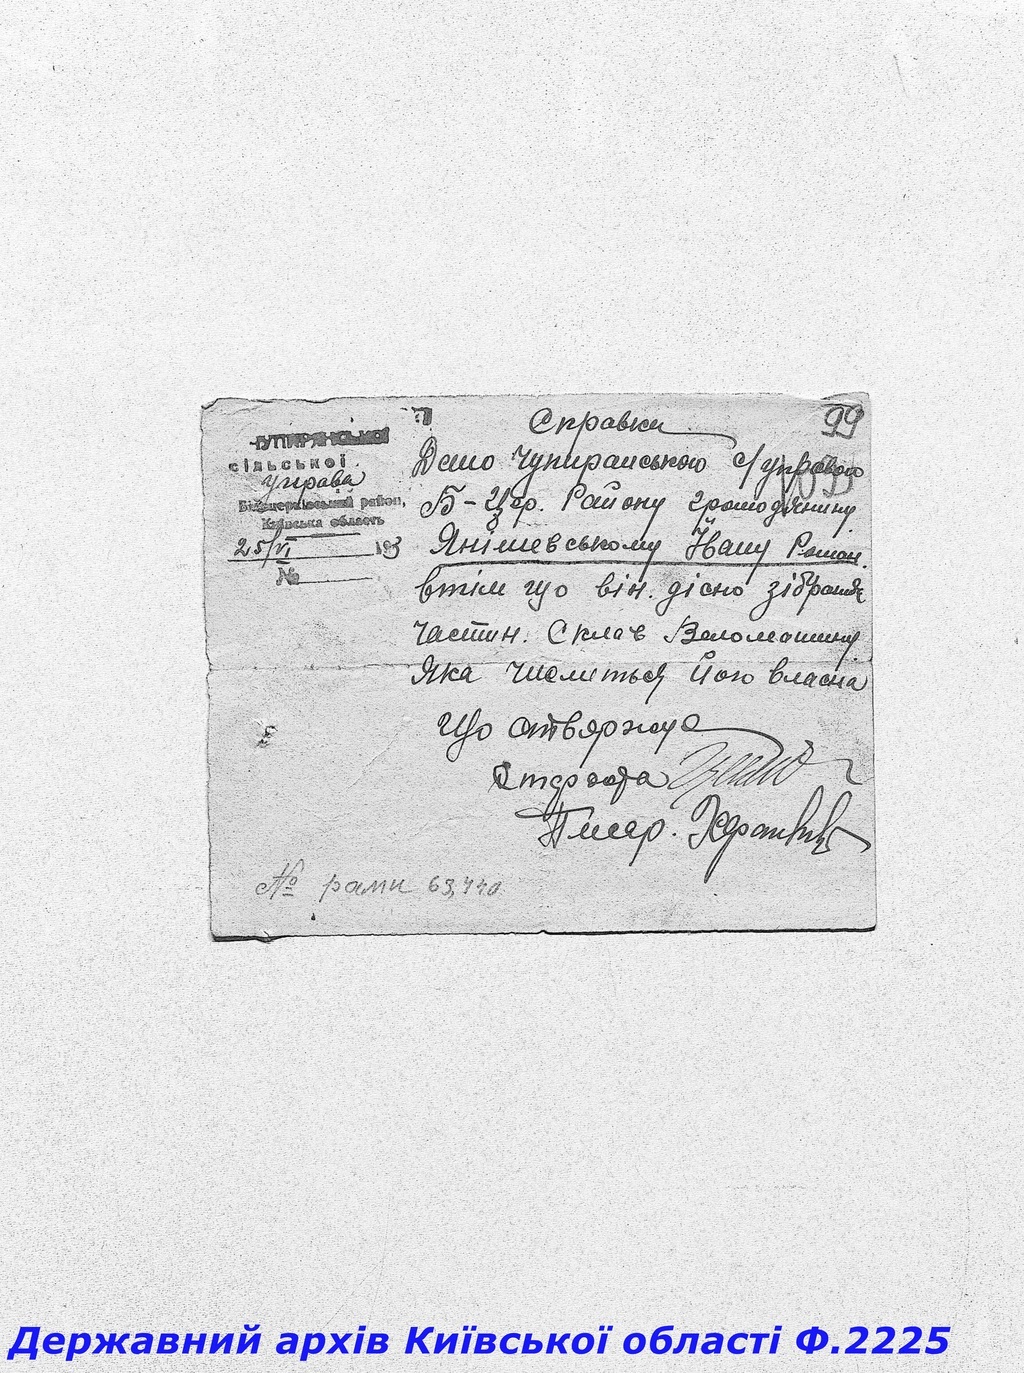 Справка
99
ЧУПИРЯНСЬКОЇ
сільської
управа
Білоцерківський район,
Київська область
25/VI 193
№
Дано Чупиранською с/управою
Б-Цер. Району громодянину
Янішевському Івану Роман.
втім що він. дісно зібрав
частин. Склав Веломашину
Яка числиться його власна
Що ствержуа
Староста
Писар.
№ рами 63,440
Державний архів Київської області Ф.2225